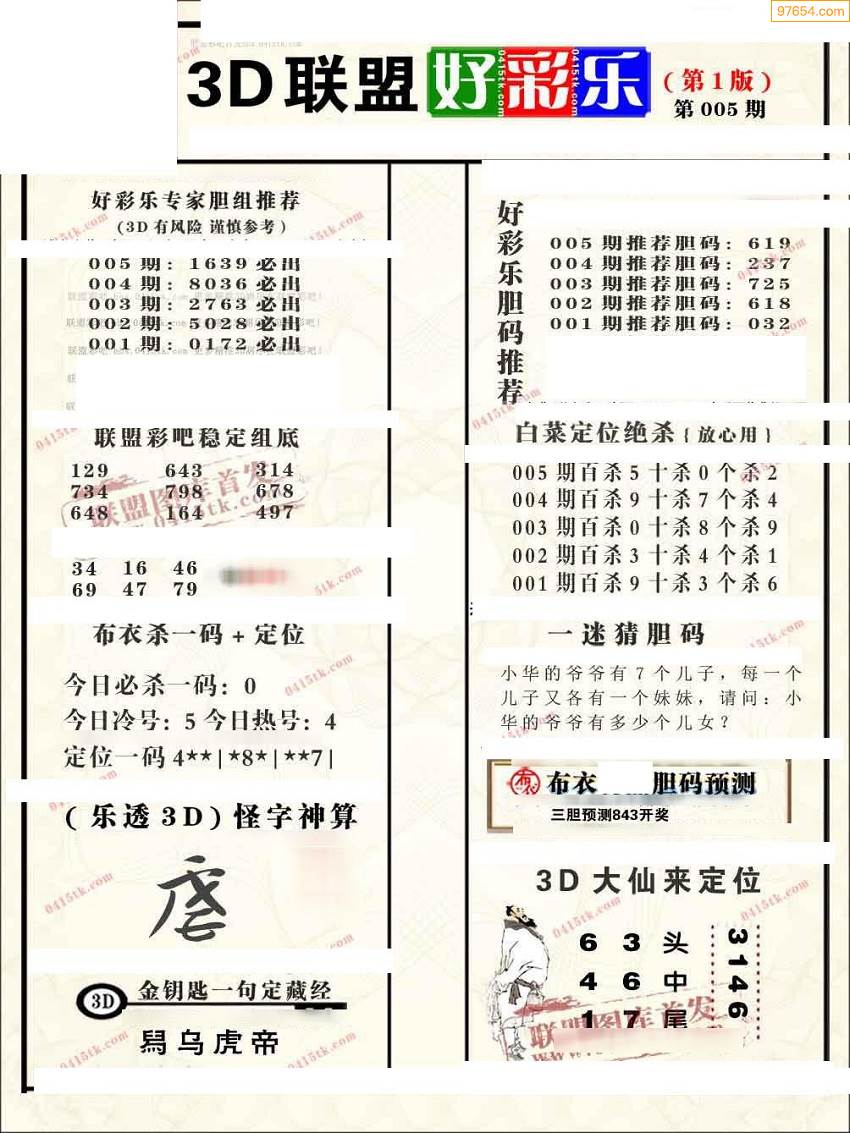 97654.com
3D联盟好彩乐
(第1版)
第005期
好彩乐专家胆组推荐
(3D有风险 谨慎参考)
005期：1639必出
004期：8036必出
003期：2763必出
002期：5028必出
001期：0172必出
联盟彩吧稳定组底
129 643 314
734 798 678
648 164 497
34 16 46
69 47 79
布衣杀一码+定位
今日必杀一码：0
今日冷号：5 今日热号：4
定位一码4**|*8*|**7|
(乐透3D)怪字神算
3D 金钥匙一句定藏经
舄乌虎帝
好彩乐胆码推荐
005期推荐胆码：619
004期推荐胆码：237
003期推荐胆码：725
002期推荐胆码：618
001期推荐胆码：032
白菜定位绝杀{放心用}
005期百杀5十杀0个杀2
004期百杀9十杀7个杀4
003期百杀0十杀8个杀9
002期百杀3十杀4个杀1
001期百杀9十杀3个杀6
一迷猜胆码
小华的爷爷有7个儿子，每一个
儿子又各有一个妹妹，请问：小
华的爷爷有多少个儿女？
布衣 胆码预测
三胆预测843开奖
3D大仙来定位
6 3 头
4 6 中
1 7 尾
3146
联盟图库首发
0415tk.com